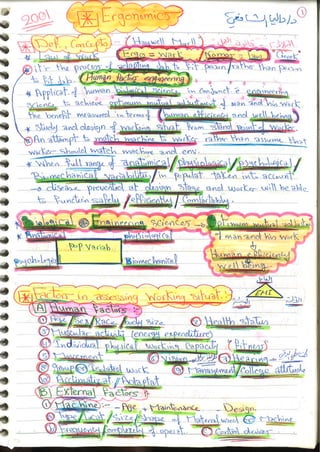 2001
Ergonomics
①
* Def., Concepts (Hauwell Marrell)
Ergo = Work / Nomos = Law Greek
it's the process of adapting Job to fit person rather than person
to fit Job. Human factors engineering
* Applicat. of human biological science in conjunct. é engineering
science to achieve optimum mutual adjustment of man and his work
the benefit measured in terms of human efficiency and well being
* Study and design of working situat. from stand point of worker.
An attempt to match machine to worker rather than assume that
worker should match machine and env.
* When full range of anatomical / physiological / psychological /
Biomechanical variability in populat. taken into account
→ disease prevented at design stage and worker will be able
to function safely / efficiently / comfortably.
Biological Engineering sciences → optimum mutual adjust.
Anatomical physiological
of man and his work
Pop Variab.
Human efficiency
Psychological Biomechanical
well being
* Factor in assessing working situat.
A Human Factors
① Age / Sex / Race / body size
Health status
② Muscular activity (energy expenditure)
③ Individual physical working capacity (fitness)
④ Movement Vision Hearing
group or isolated work Management / College attitude
Acclimatizat. / Adaptat.
B External Factors
① Machine: - Age, Maintenance, Design
Type / Weight / Size / Shape of Material used or Machine
Frequently / complexity of operat. Control devices